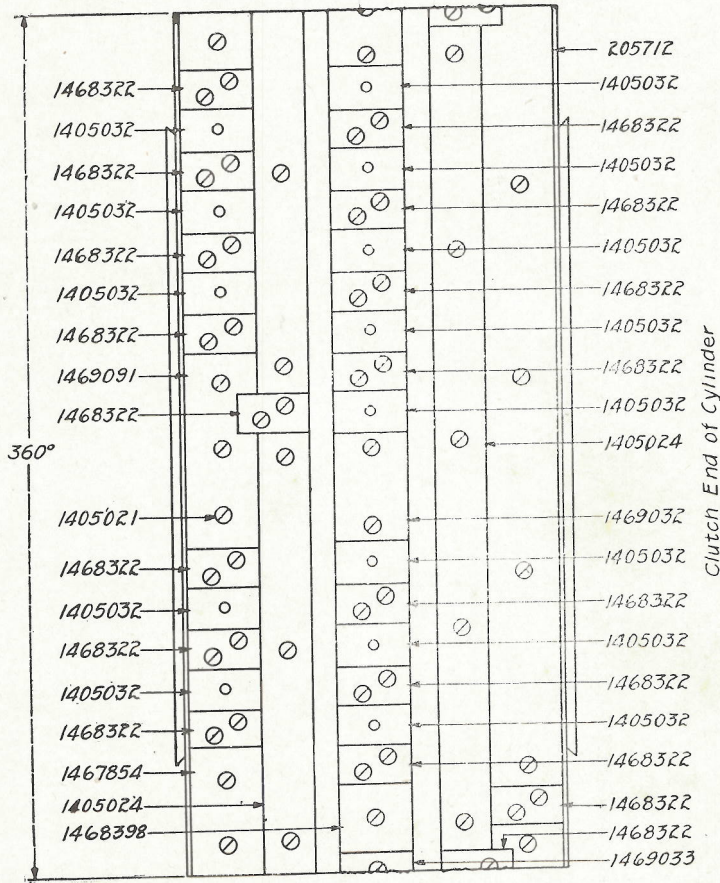 1468322
1405032
1468322
1405032
1468322
1405032
1468322
1469091
1468322
360°
1405021
1468322
1405032
1468322
1405032
1468322
1467854
1405024
1468398
205712
1405032
1468322
1405032
1468322
1405032
1468322
1405032
1468322
1405032
1405024
1469032
1405032
1468322
1405032
1468322
1405032
1468322
1468322
1468322
1469033
Clutch End of Cylinder